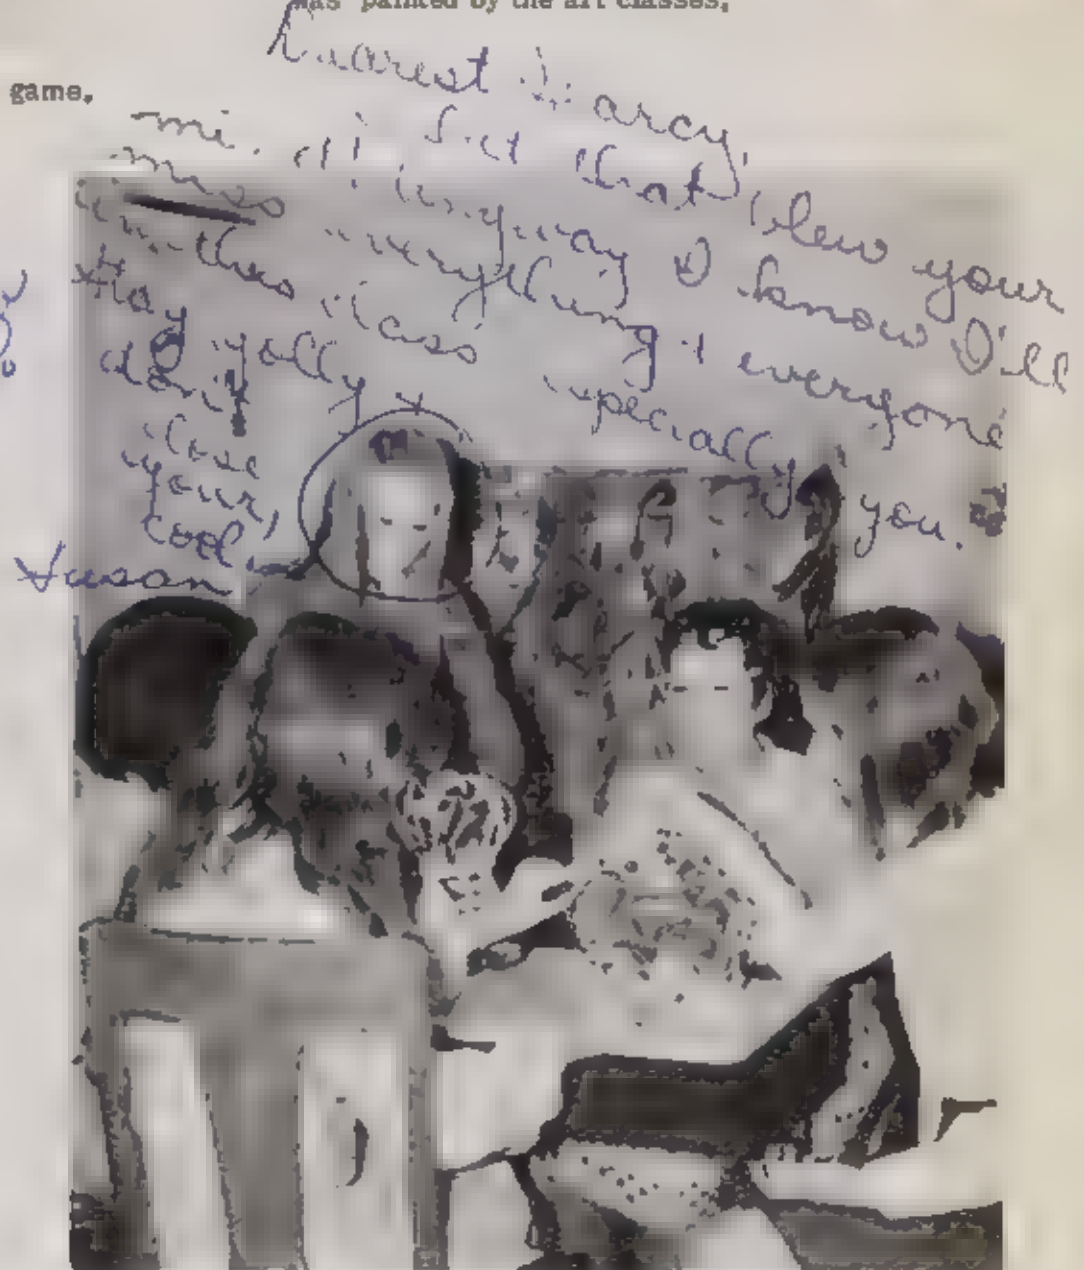 was painted by the art classes.
game.
Dearest Darcy,
I bet that blew your
Anyway I know I'll
miss everything & everyone
this class especially you.
Stay jolly
lose
your
cool!
Susan